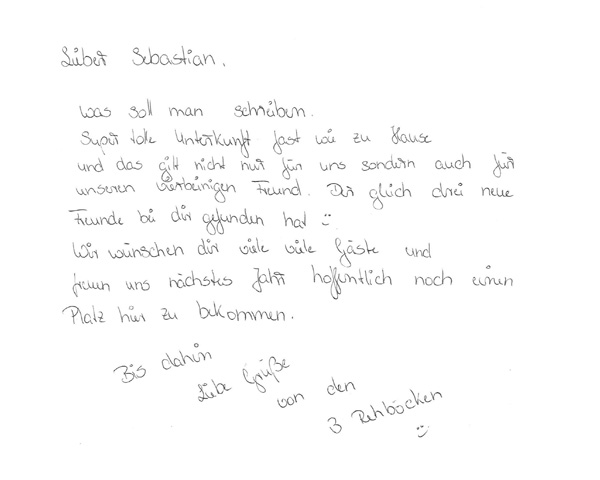 Lieber Sebastian,
was soll man schreiben.
Super tolle Unterkunft fast wie zu Hause
und das gilt nicht nur für uns sondern auch für
unseren vierbeinigen Freund. Der gleich drei neue
Freunde bei dir gefunden hat :)
Wir wünschen dir viele viele Gäste und
freuen uns nächstes Jahr hoffentlich noch einen
Platz hier zu bekommen.
Bis dahin
Liebe Grüße
von den
3 Rehböcken
:)